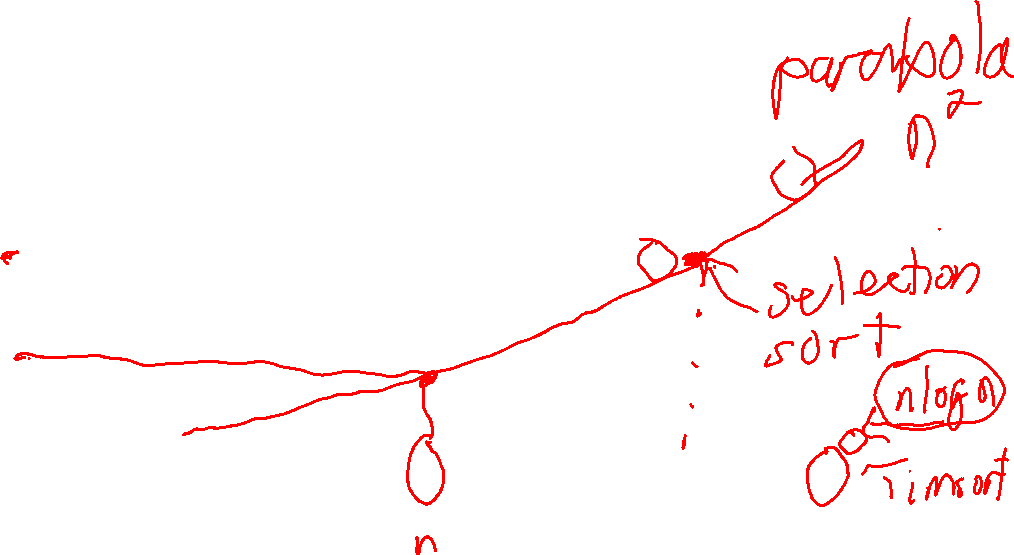 parabola
n²
selection
sort
nlogn
Timsort
n